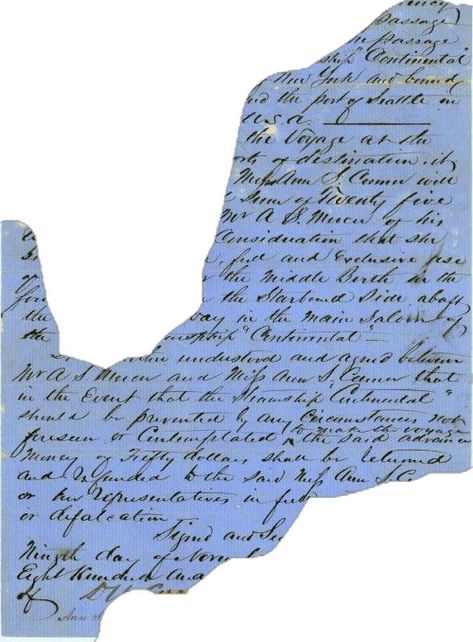 passage
the passage
ship "Continental"
New York and bound
and the port of Seattle in
U.S.A.
the Voyage at the
ports of destination it
Miss Ann S. Conner will
Sum of Twenty five
Mr A S. Mercer of his
Consideration that she
full and Exclusive use
of the Middle Berth in the
for the Starboard Side, abaft
the way in the Main Saloon of
the Steamship "Continental" —
understood and agreed between
Mr A S Mercer and Miss Ann S. Conner that
in the Event that the Steamship "Continental"
should be prevented by any Circumstances not
to make the voyage
foreseen or Contemplated ^ the said advance
Money of Fifty dollars shall be returned
and refunded to the said Miss Ann S. Co
or her representatives in full
or defalcation
Signed and Se
Ninth day of Nov
Eight Hundred and
of
Ann S